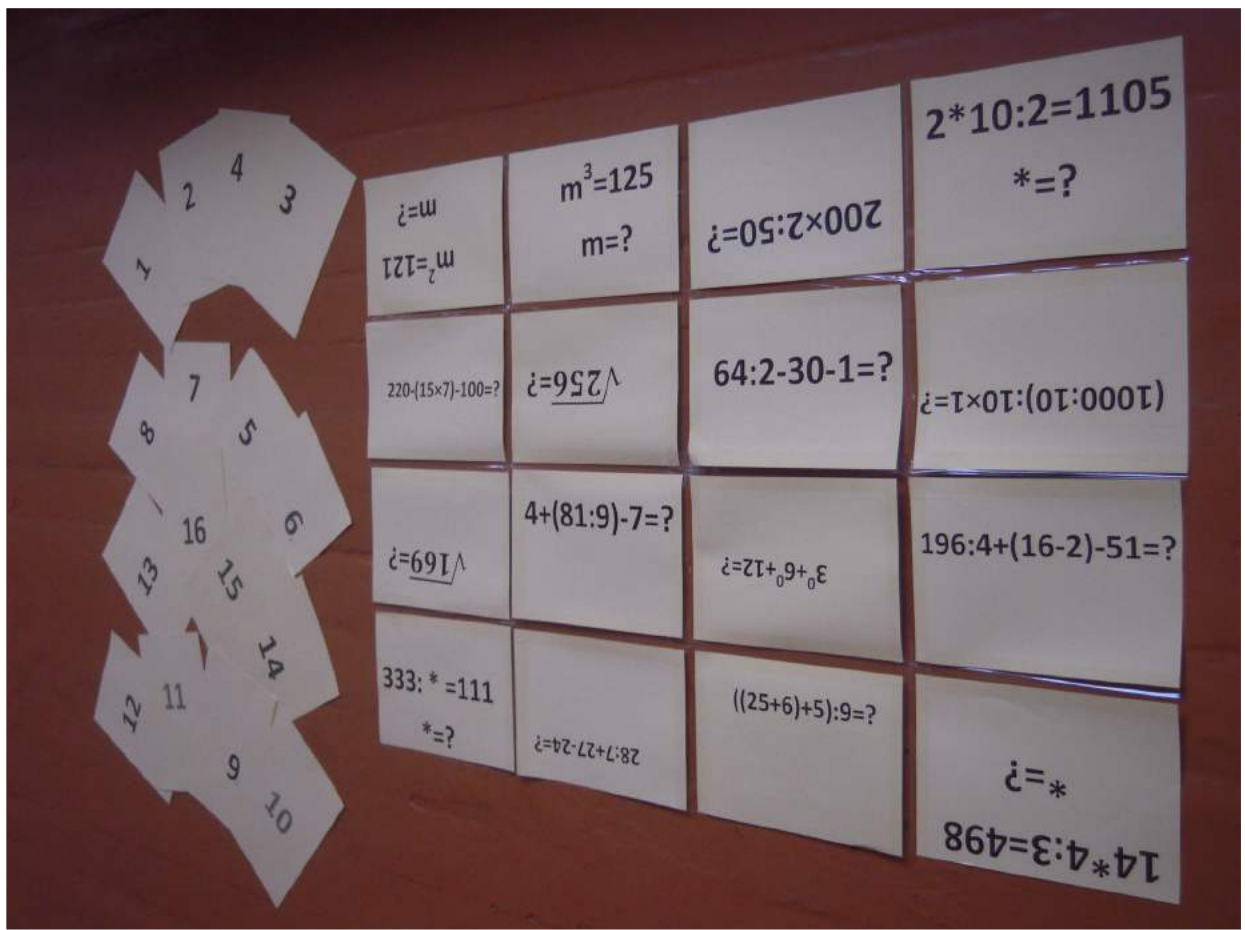 4
2
3
1
7
8
5
16
6
13
15
14
11
12
9
10
m²=121
m=?
m³=125
m=?
200×2:50=?
2*10:2=1105
*=?
220-(15×7)-100=?
√256=?
64:2-30-1=?
(1000:10):10×1=?
√169=?
4+(81:9)-7=?
3⁰+6⁰+12=?
196:4+(16-2)-51=?
333: * =111
*=?
28:7+27-24=?
((25+6)+5):9=?
14*4:3=498
*=?